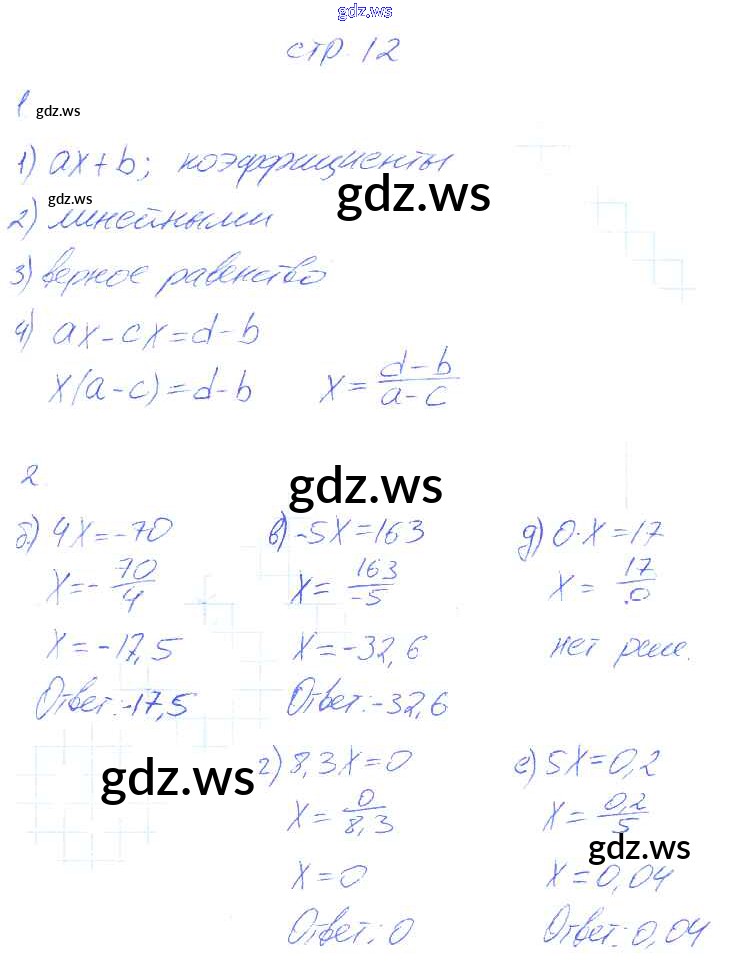 gdz.ws
стр. 12
1 gdz.ws
1) ax+b; коэффициенты
gdz.ws
gdz.ws
2) линейными
3) верное равенство
4) ax-cx=d-b
x(a-c)=d-b x=\frac{d-b}{a-c}
2.
gdz.ws
б) 4x=-70
x=-\frac{70}{4}
x=-17,5
Ответ:-17,5
в) -5x=163
x=\frac{163}{-5}
x=-32,6
Ответ:-32,6
д) 0·x=17
x=\frac{17}{0}
нет реш.
gdz.ws
г) 8,3x=0
x=\frac{0}{8,3}
x=0
Ответ: 0
е) 5x=0,2
x=\frac{0,2}{5}
gdz.ws
x=0,04
Ответ: 0,04